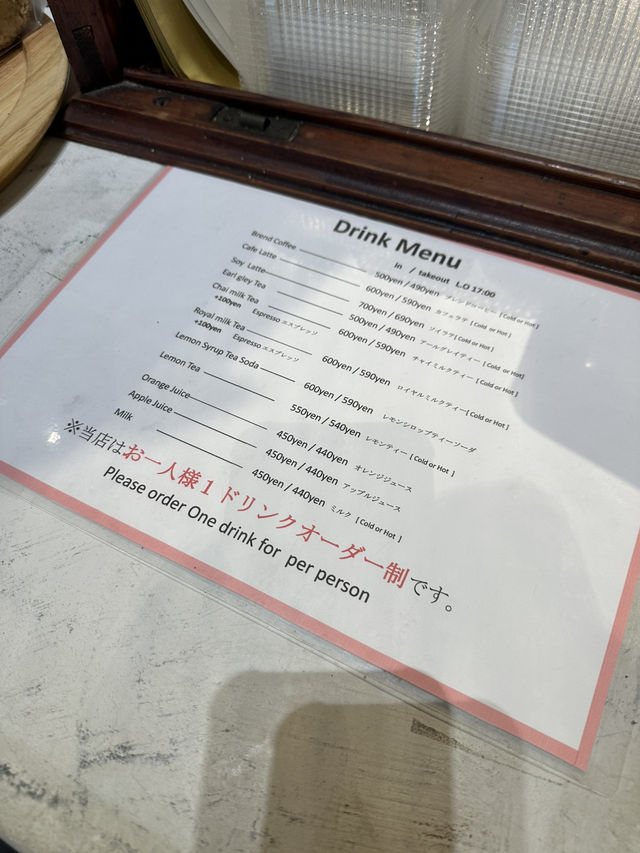 Drink Menu
in / takeout L.O 17:00
Brend Coffee 500yen / 490yen ブレンドコーヒー [ Cold or Hot ]
Cafe Latte 600yen / 590yen カフェラテ [ Cold or Hot ]
Soy Latte 700yen / 690yen ソイラテ[ Cold or Hot ]
Earl gley Tea 500yen / 490yen アールグレイティー [ Cold or Hot ]
Chai milk Tea 600yen / 590yen チャイミルクティー [ Cold or Hot ]
+100yen Espresso エスプレッソ
Royal milk Tea 600yen / 590yen ロイヤルミルクティー[ Cold or Hot ]
+100yen Espresso エスプレッソ
Lemon Syrup Tea Soda 600yen / 590yen レモンシロップティーソーダ
Lemon Tea 550yen / 540yen レモンティー [ Cold or Hot ]
Orange Juice 450yen / 440yen オレンジジュース
Apple Juice 450yen / 440yen アップルジュース
Milk 450yen / 440yen ミルク [ Cold or Hot ]
※当店はお一人様１ドリンクオーダー制です。
Please order One drink for per person